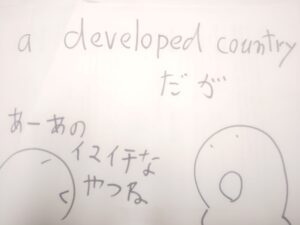 a developed country
だが
あーあの
イスイチな
やつね